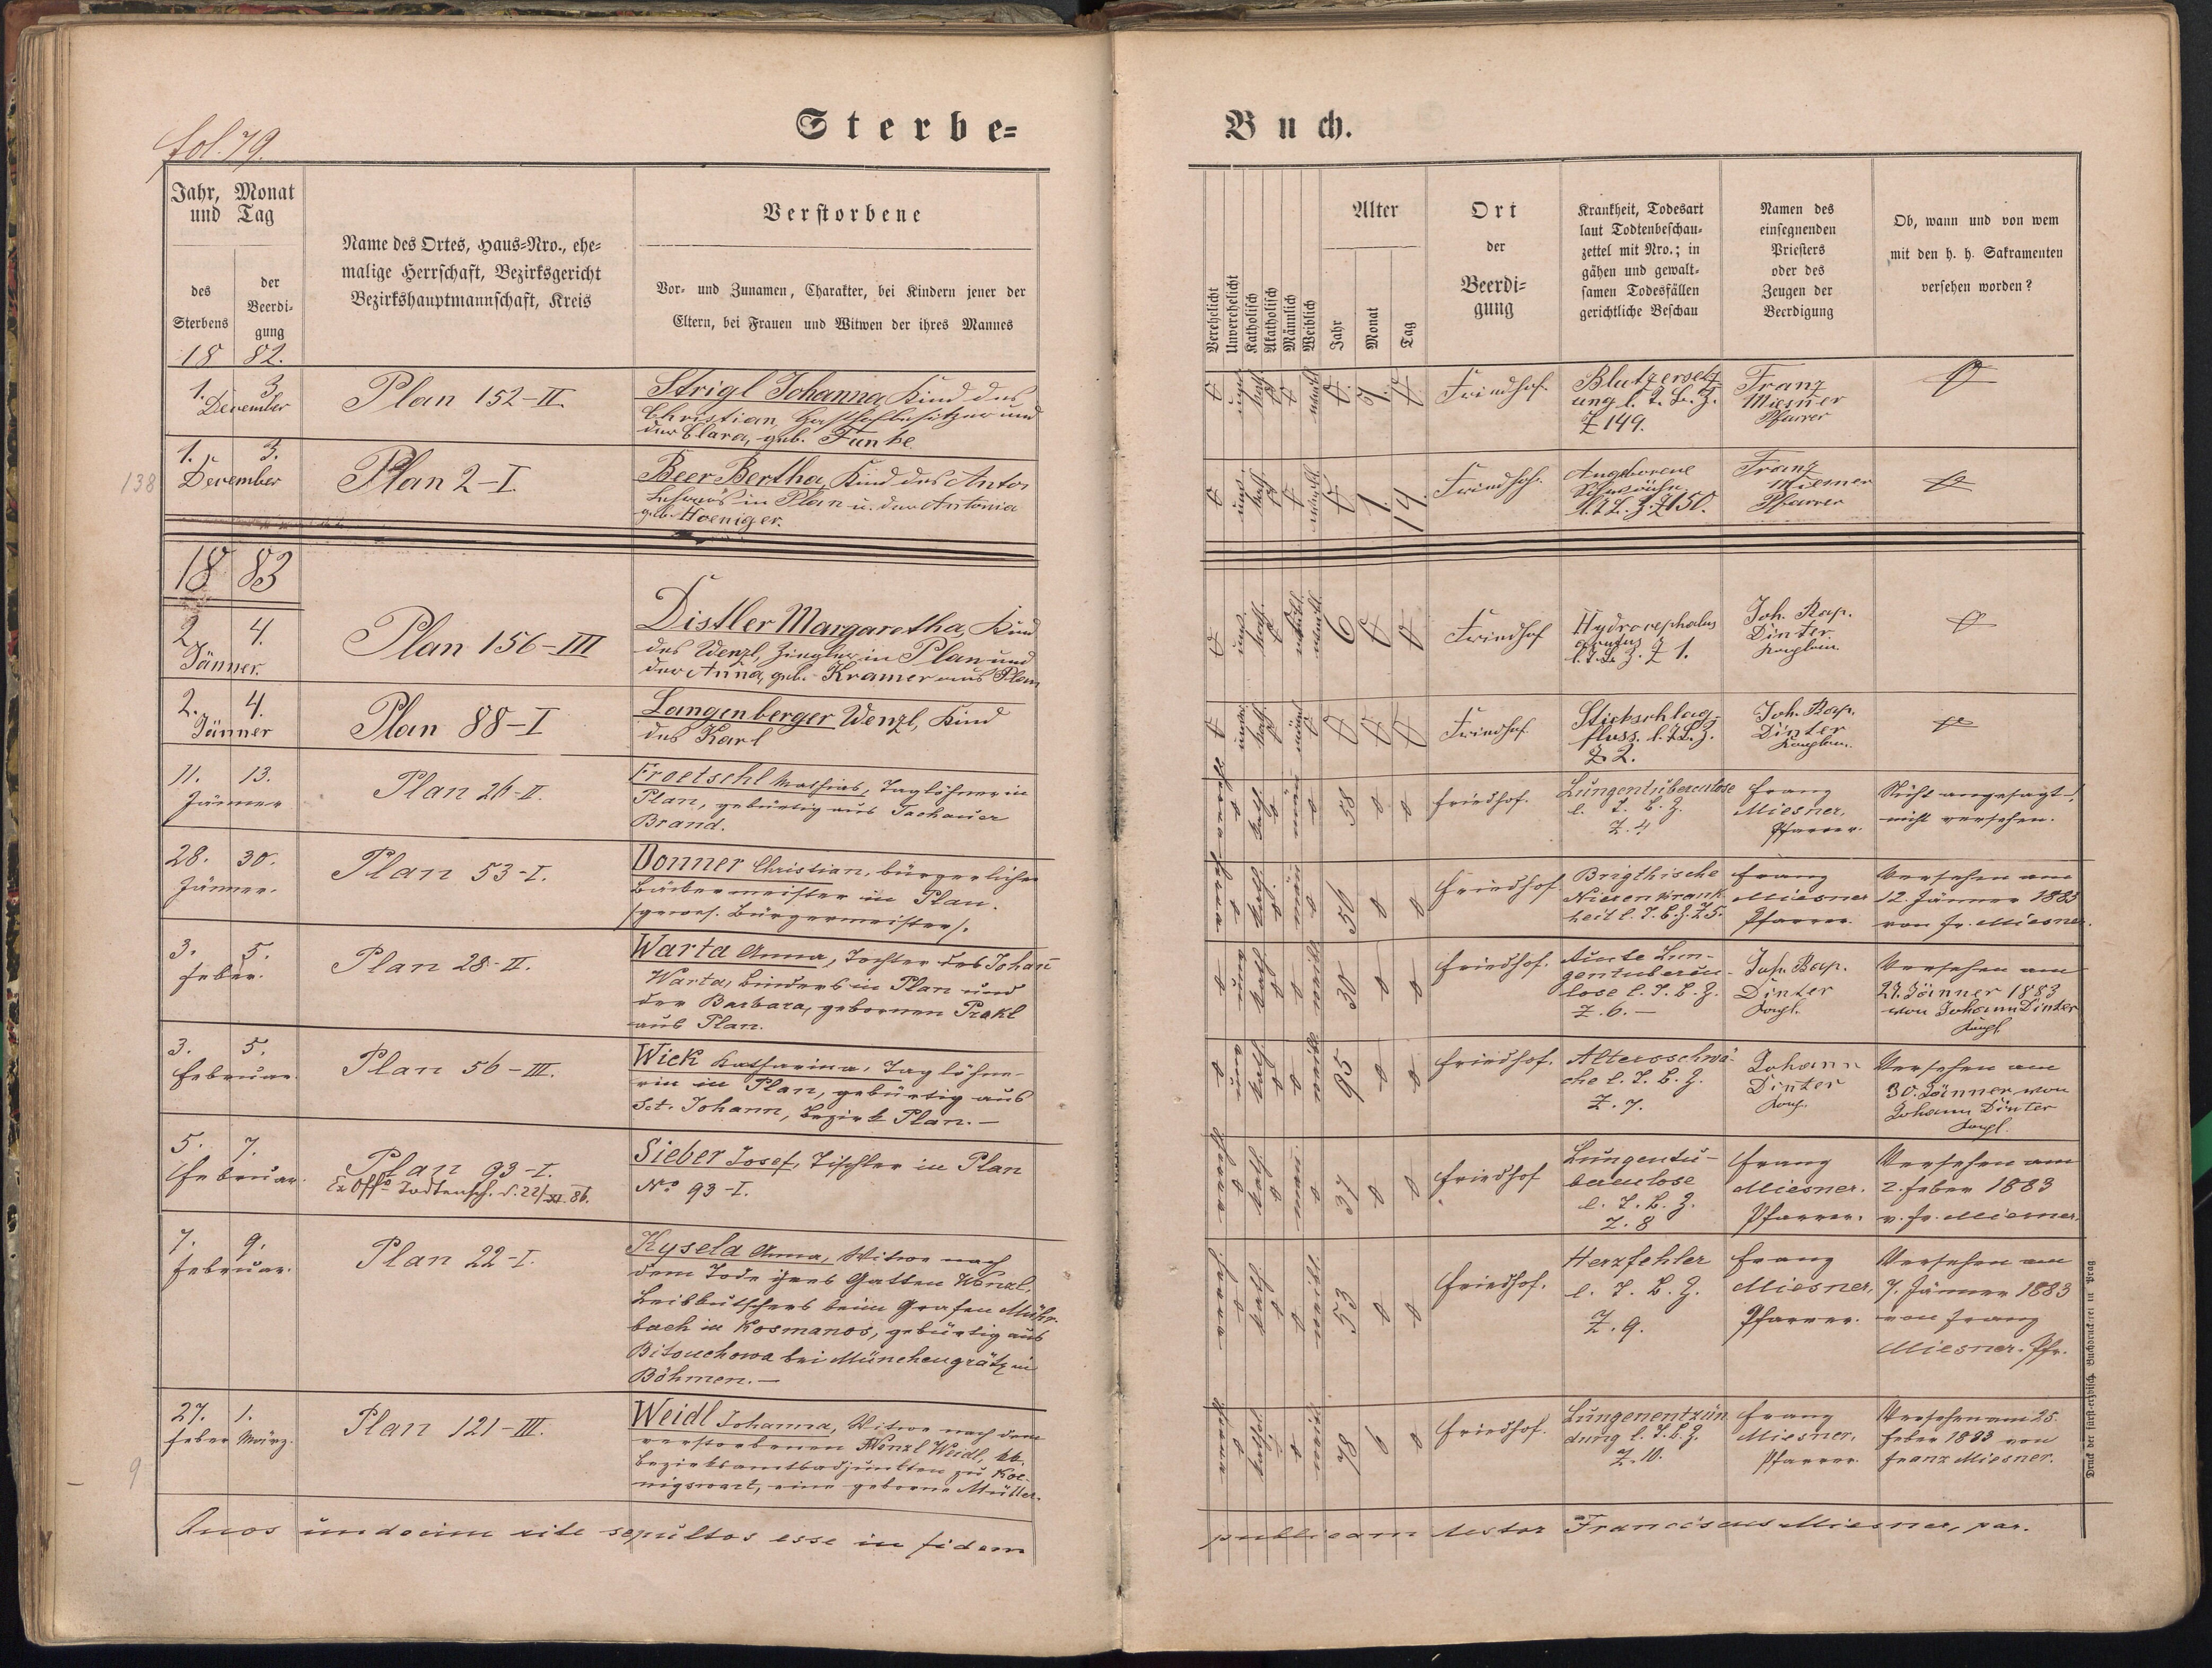 Sterbe=
Buch.
fol. 79.
Jahr, Monat
und Tag
des
Sterbens
der
Beerdi=
gung
18 82.
Name des Ortes, Haus=Nro., ehe=
malige Herrschaft, Bezirksgericht
Bezirkshauptmannschaft, Kreis
Verstorbene
Vor= und Zunamen, Charakter, bei Kindern jener der
Eltern, bei Frauen und Witwen der ihres Mannes
Verehelicht
Unverehelicht
Katholisch
Akatholisch
Männlich
Weiblich
Alter
Jahr
Monat
Tag
Ort
der
Beerdi=
gung
Krankheit, Todesart
laut Todtenbeschau=
zettel mit Nro.; in
gähen und gewalt=
samen Todesfällen
gerichtliche Beschau
Namen des
einsegnenden
Priesters
oder des
Zeugen der
Beerdigung
Ob, wann und von wem
mit den h. h. Sakramenten
versehen worden?
1. 3.
December
Plan 152-II
Strigl Johanna, Kind des
Christian, Gasthofbesitzer und
der Clara, geb. Funke.
Friedhof.
Blutzersetz
ung l. T. B. Z.
Z 149.
Franz
Miesner
Pfarrer
138
1. 3.
December
Plan 2-I
Beer Bertha, Kind des Anton
in Plan u. der Antonia
geb. Hoeniger.
1 14
Friedhof.
Angeborene
Z 150.
Franz
Miesner
Pfarrer
18 83
2. 4.
Jänner.
Plan 156-III
Distler Margaretha, Kind
des Wenzl, Ziegler in Plan und
der Anna, geb. Kramer aus Plan
6
Friedhof
Hydrocephalus
acutus
l. T. B. Z. Z 1.
Joh. Bap.
Dinter
Kaplan.
2. 4.
Jänner
Plan 88-I
Langenberger Wenzl, Kind
des Karl
Friedhof
Stickschlag-
fluss. l. T. B. Z.
Z 2.
Joh. Bap.
Dinter
Kaplan.
11. 13.
Jänner
Plan 26-II.
Froetschl Mathias, Taglöhner in
Plan, gebürtig aus Tachauer
Brand.
58
Friedhof.
Lungentuberculose
l. T. B. Z.
Z. 4
Franz
Miesner,
Pfarrer.
Nicht angesagt,
nicht versehen.
28. 30.
Jänner.
Plan 53-I.
Donner Christian, bürgerlicher
Bäckermeister in Plan.
/gewes. Bürgermeister/.
56
Friedhof
Brigthische
Nierenkrank
heit l. T. B. Z. Z 5.
Franz
Miesner
Pfarrer.
Versehen am
12. Jänner 1883
von Fr. Miesner.
3. 5.
Feber.
Plan 28-II.
Warta Anna, Tochter des Johan
Warta, Binders in Plan und
der Barbara, gebornen Prokl
aus Plan.
30
Friedhof.
Acute Lun-
gentubercu-
lose l. T. B. Z.
Z. 6.-
Joh. Bap.
Dinter
Kapl.
Versehen am
27. Jänner 1883
von Johann Dinter
Kapl.
3. 5.
Februar.
Plan 56-III.
Wiek Katharina, Taglöhne-
rin in Plan, gebürtig aus
Sct. Johann, Bezirk Plan.-
95
Friedhof.
Altersschwä-
che l. T. B. Z.
Z. 7.
Johann
Dinter
Kapl.
Versehen am
30. Jänner von
Johann Dinter
Kapl.
5. 7.
Februar.
Plan 93-I.
Ex Offo Todtensch. d. 22/XI. 86.
Sieber Josef, Tischler in Plan
No 93-I.
37
Friedhof
Lungentu-
berculose
l. T. B. Z.
Z. 8
Franz
Miesner.
Pfarrer.
Versehen am
2. Feber 1883
v. Fr. Miesner.
7. 9.
Februar.
Plan 22-I.
Kysela Anna, Witwe nach
dem Tode ihres Gatten Wenzl,
Leibkutschers beim Grafen
in Kosmanos, gebürtig aus
Bitouchowa bei Münchengrätz in
Böhmen.-
53
Friedhof.
Herzfehler
l. T. B. Z.
Z. 9.
Franz
Miesner,
Pfarrer.
Versehen am
7. Jänner 1883
von Franz
Miesner. Pfr.
27. 1.
Feber März.
9
Plan 121-III.
Weidl Johanna, Witwe nach dem
verstorbenen Wenzl Weidl, kk.
Bezirksamtsadjunkten zu Koe-
nigswart, eine geborne Müller.
78 6
Friedhof.
Lungenentzün
dung l. T. B. Z.
Z. 10.
Franz
Miesner.
Pfarrer.
Versehen am 25.
Feber 1883 von
Franz Miesner.
Quos undecim rite sepultos esse in fidem
publicam testor Franciscus Miesner, par.
Druck der fürst-erzbisch. Buchdruckerei in Prag